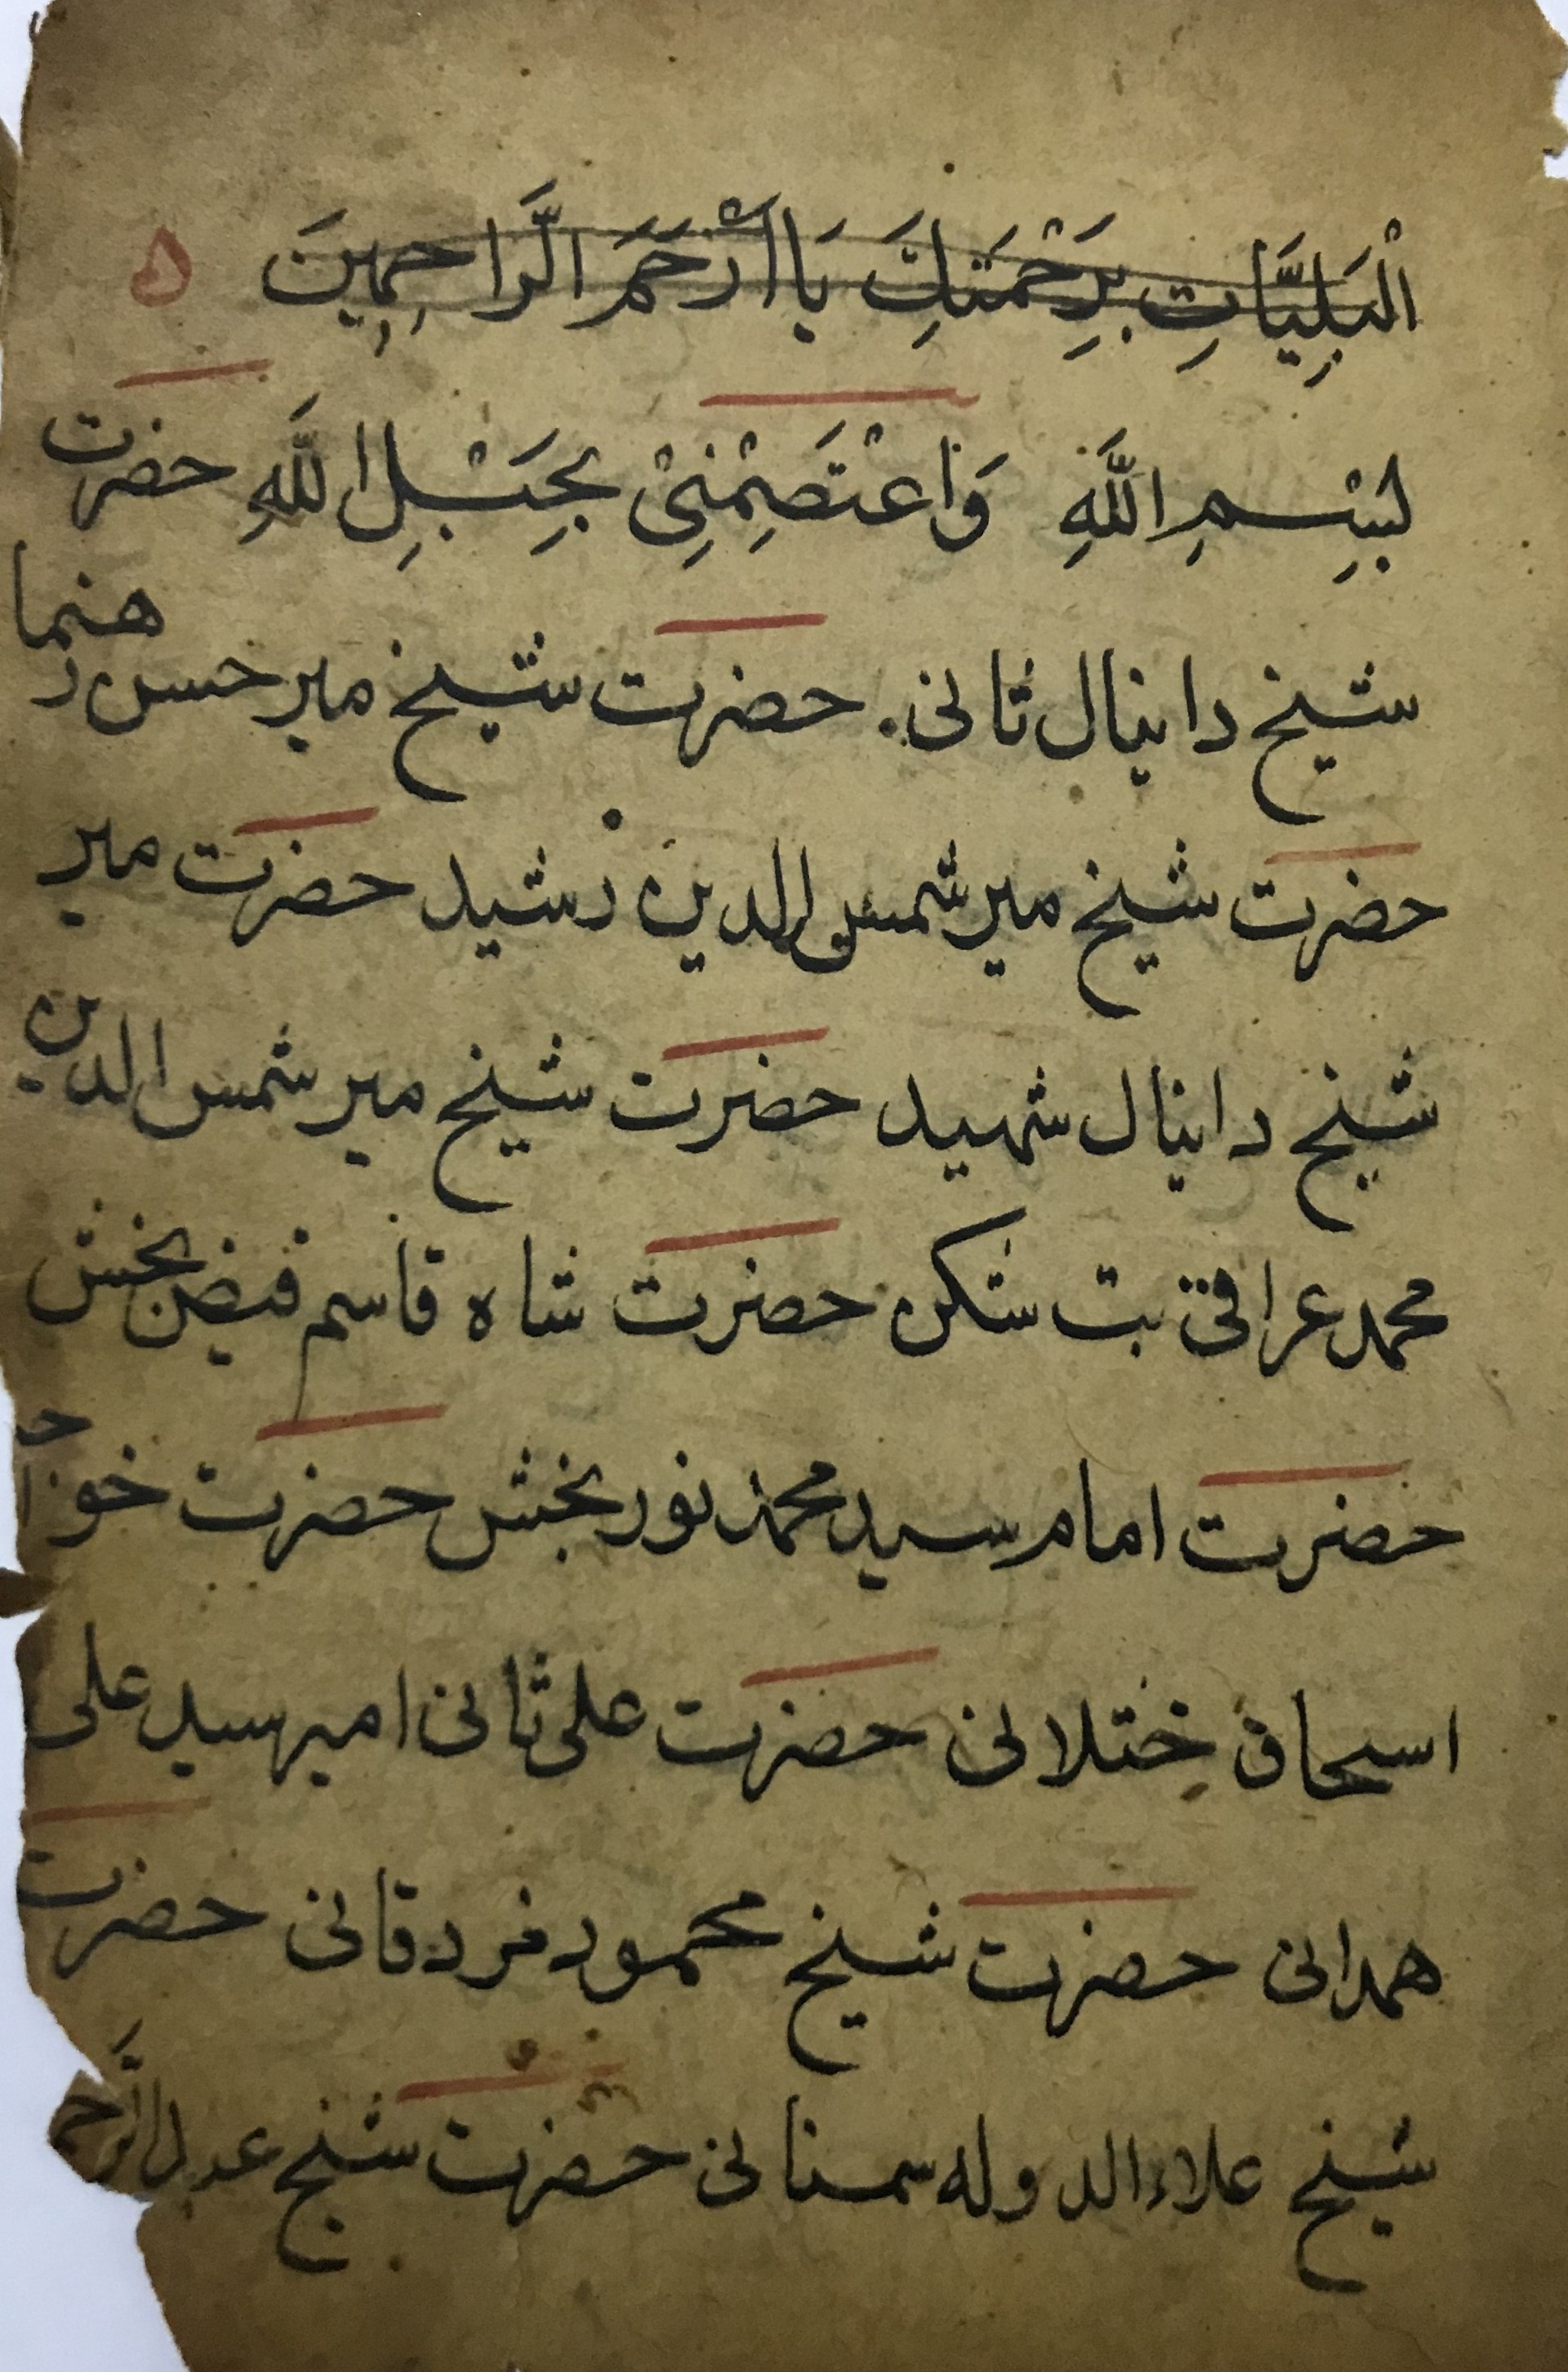 الْبَلِيَّاتِ بِرَحْمَتِكَ يَا أَرْحَمَ الرَّاحِمِينَ ۵
بِسْمِ اللَّهِ وَاعْتَصِمْنِيْ بِحَبْلِ اللَّهِ حضرت
شیخ دانیال ثانی. حضرت شیخ میر حسن رهنما
حضرت شیخ میر شمس الدین رشید حضرت میر
شیخ دانیال شهید حضرت شیخ میر شمس الدین
محمد عراقی بت شکن حضرت شاه قاسم فیض بخش
حضرت امام سید محمد نور بخش حضرت
اسحاق ختلانی حضرت علی ثانی امیر سید علی
همدانی حضرت شیخ محمود مزدقانی حضرت
شیخ علاء الدوله سمنانی حضرت شیخ